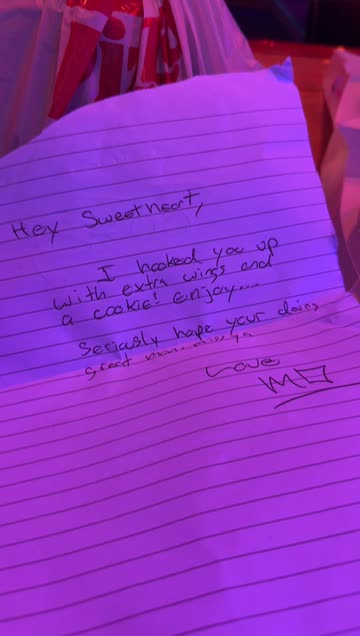 Hey Sweetheart,
I hooked you up
with extra wings and
a cookie! enjoy...
Seriously hope your doing
great
Love